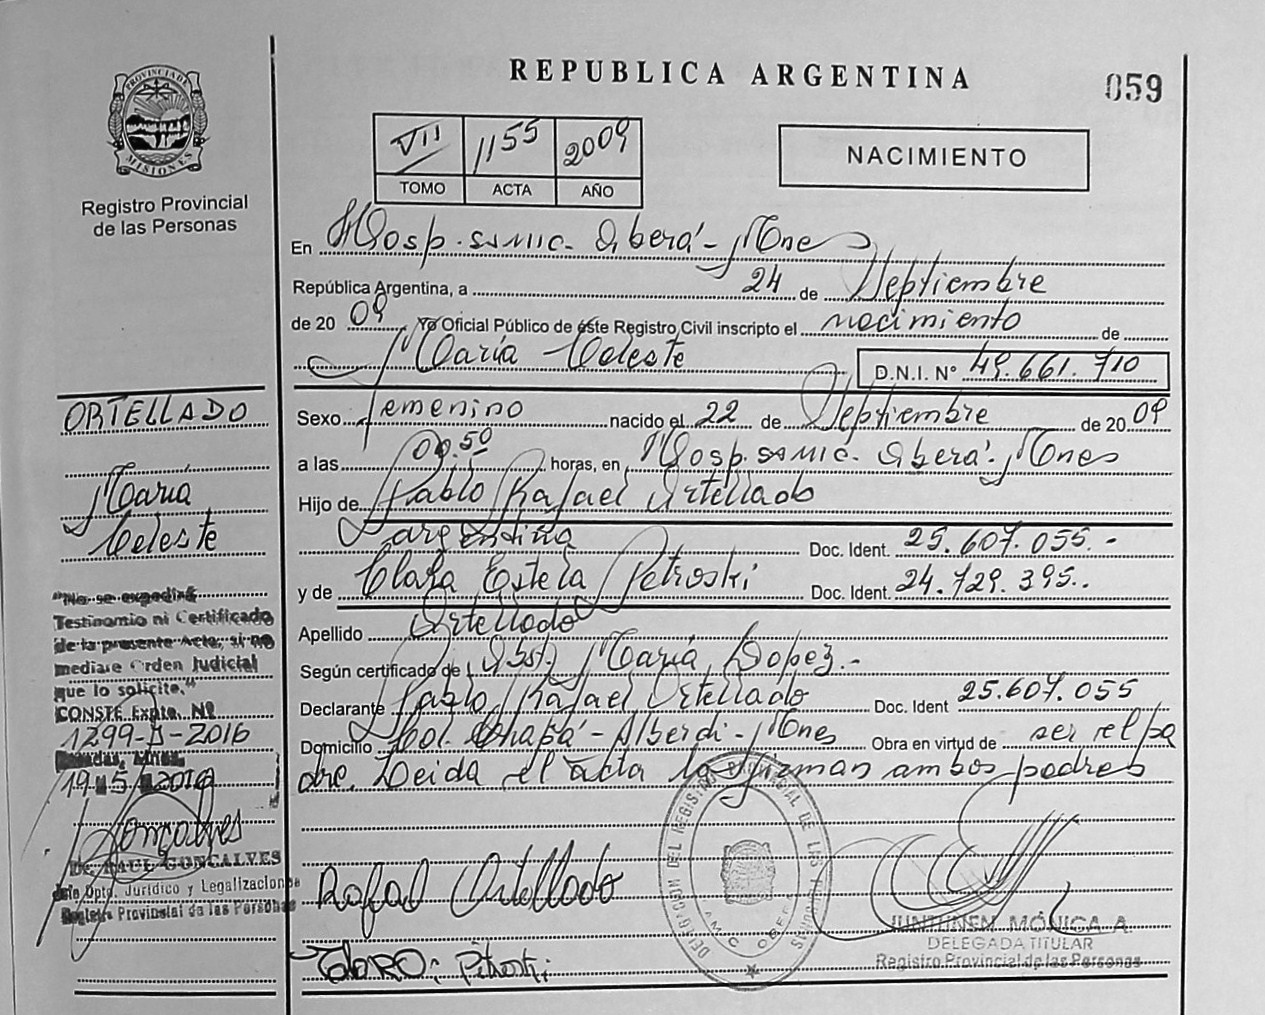 REPUBLICA ARGENTINA
059
PROVINCIA DE MISIONES
Registro Provincial
de las Personas
VII 1155 2009
TOMO ACTA AÑO
NACIMIENTO
En Hosp. SAMIC. Oberá - Mnes
República Argentina, a 24 de Septiembre
de 20 09 Yo Oficial Público de éste Registro Civil inscripto el nacimiento de
María Celeste
D.N.I. Nº 49.661.710
Sexo femenino nacido el 22 de Septiembre de 20 09
a las horas, en Hosp. SAMIC. Oberá - Mnes
Hijo de Pablo Rafael Ortellado
argentina Doc. Ident. 25.607.055.-
y de Clara Estela Petroski Doc. Ident. 24.729.395..
Apellido Ortellado
Según certificado de Obst. María Lopez.-
Declarante Pablo Rafael Ortellado Doc. Ident 25.607.055
Domicilio Col. Chapá - Alberdi - Mnes Obra en virtud de ser el pa
dre. Leida el acta la firman ambos padres
Rafael Ortellado
Petroski
JUNTUNEN MÓNICA A.
DELEGADA TITULAR
Registro Provincial de las Personas
DELEGACION DEL REGISTRO PROVINCIAL DE LAS PERSONAS
ORTELLADO
María
Celeste
"No se expedirá
Testinomio ni Certificado
de la presente Acta, si no
mediare Orden Judicial
que lo solicite."
CONSTE Expte. Nº
1299-D-2016
Posadas, Mnes.
Gonçalves
Dr. RAUL GONCALVES
Jefe Dpto. Jurídico y Legalizaciones
Registro Provincial de las Personas